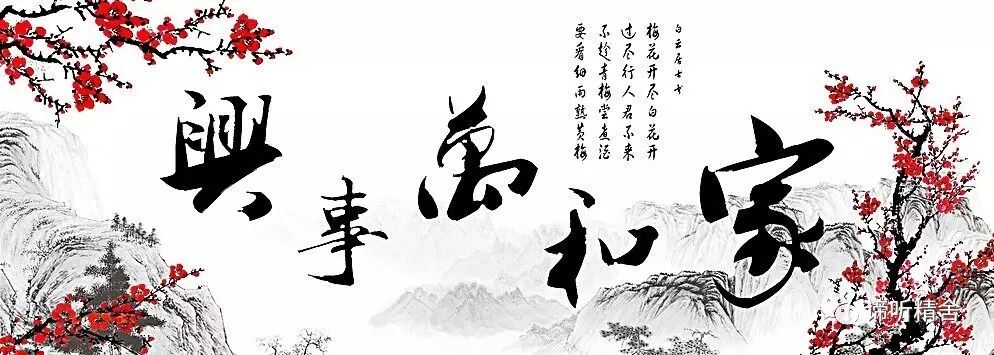 家和萬事興
白云居士七
梅花开尽白花开
过尽行人君不来
不趁青梅尝煮酒
要看细雨熟黄梅
谛听精舍